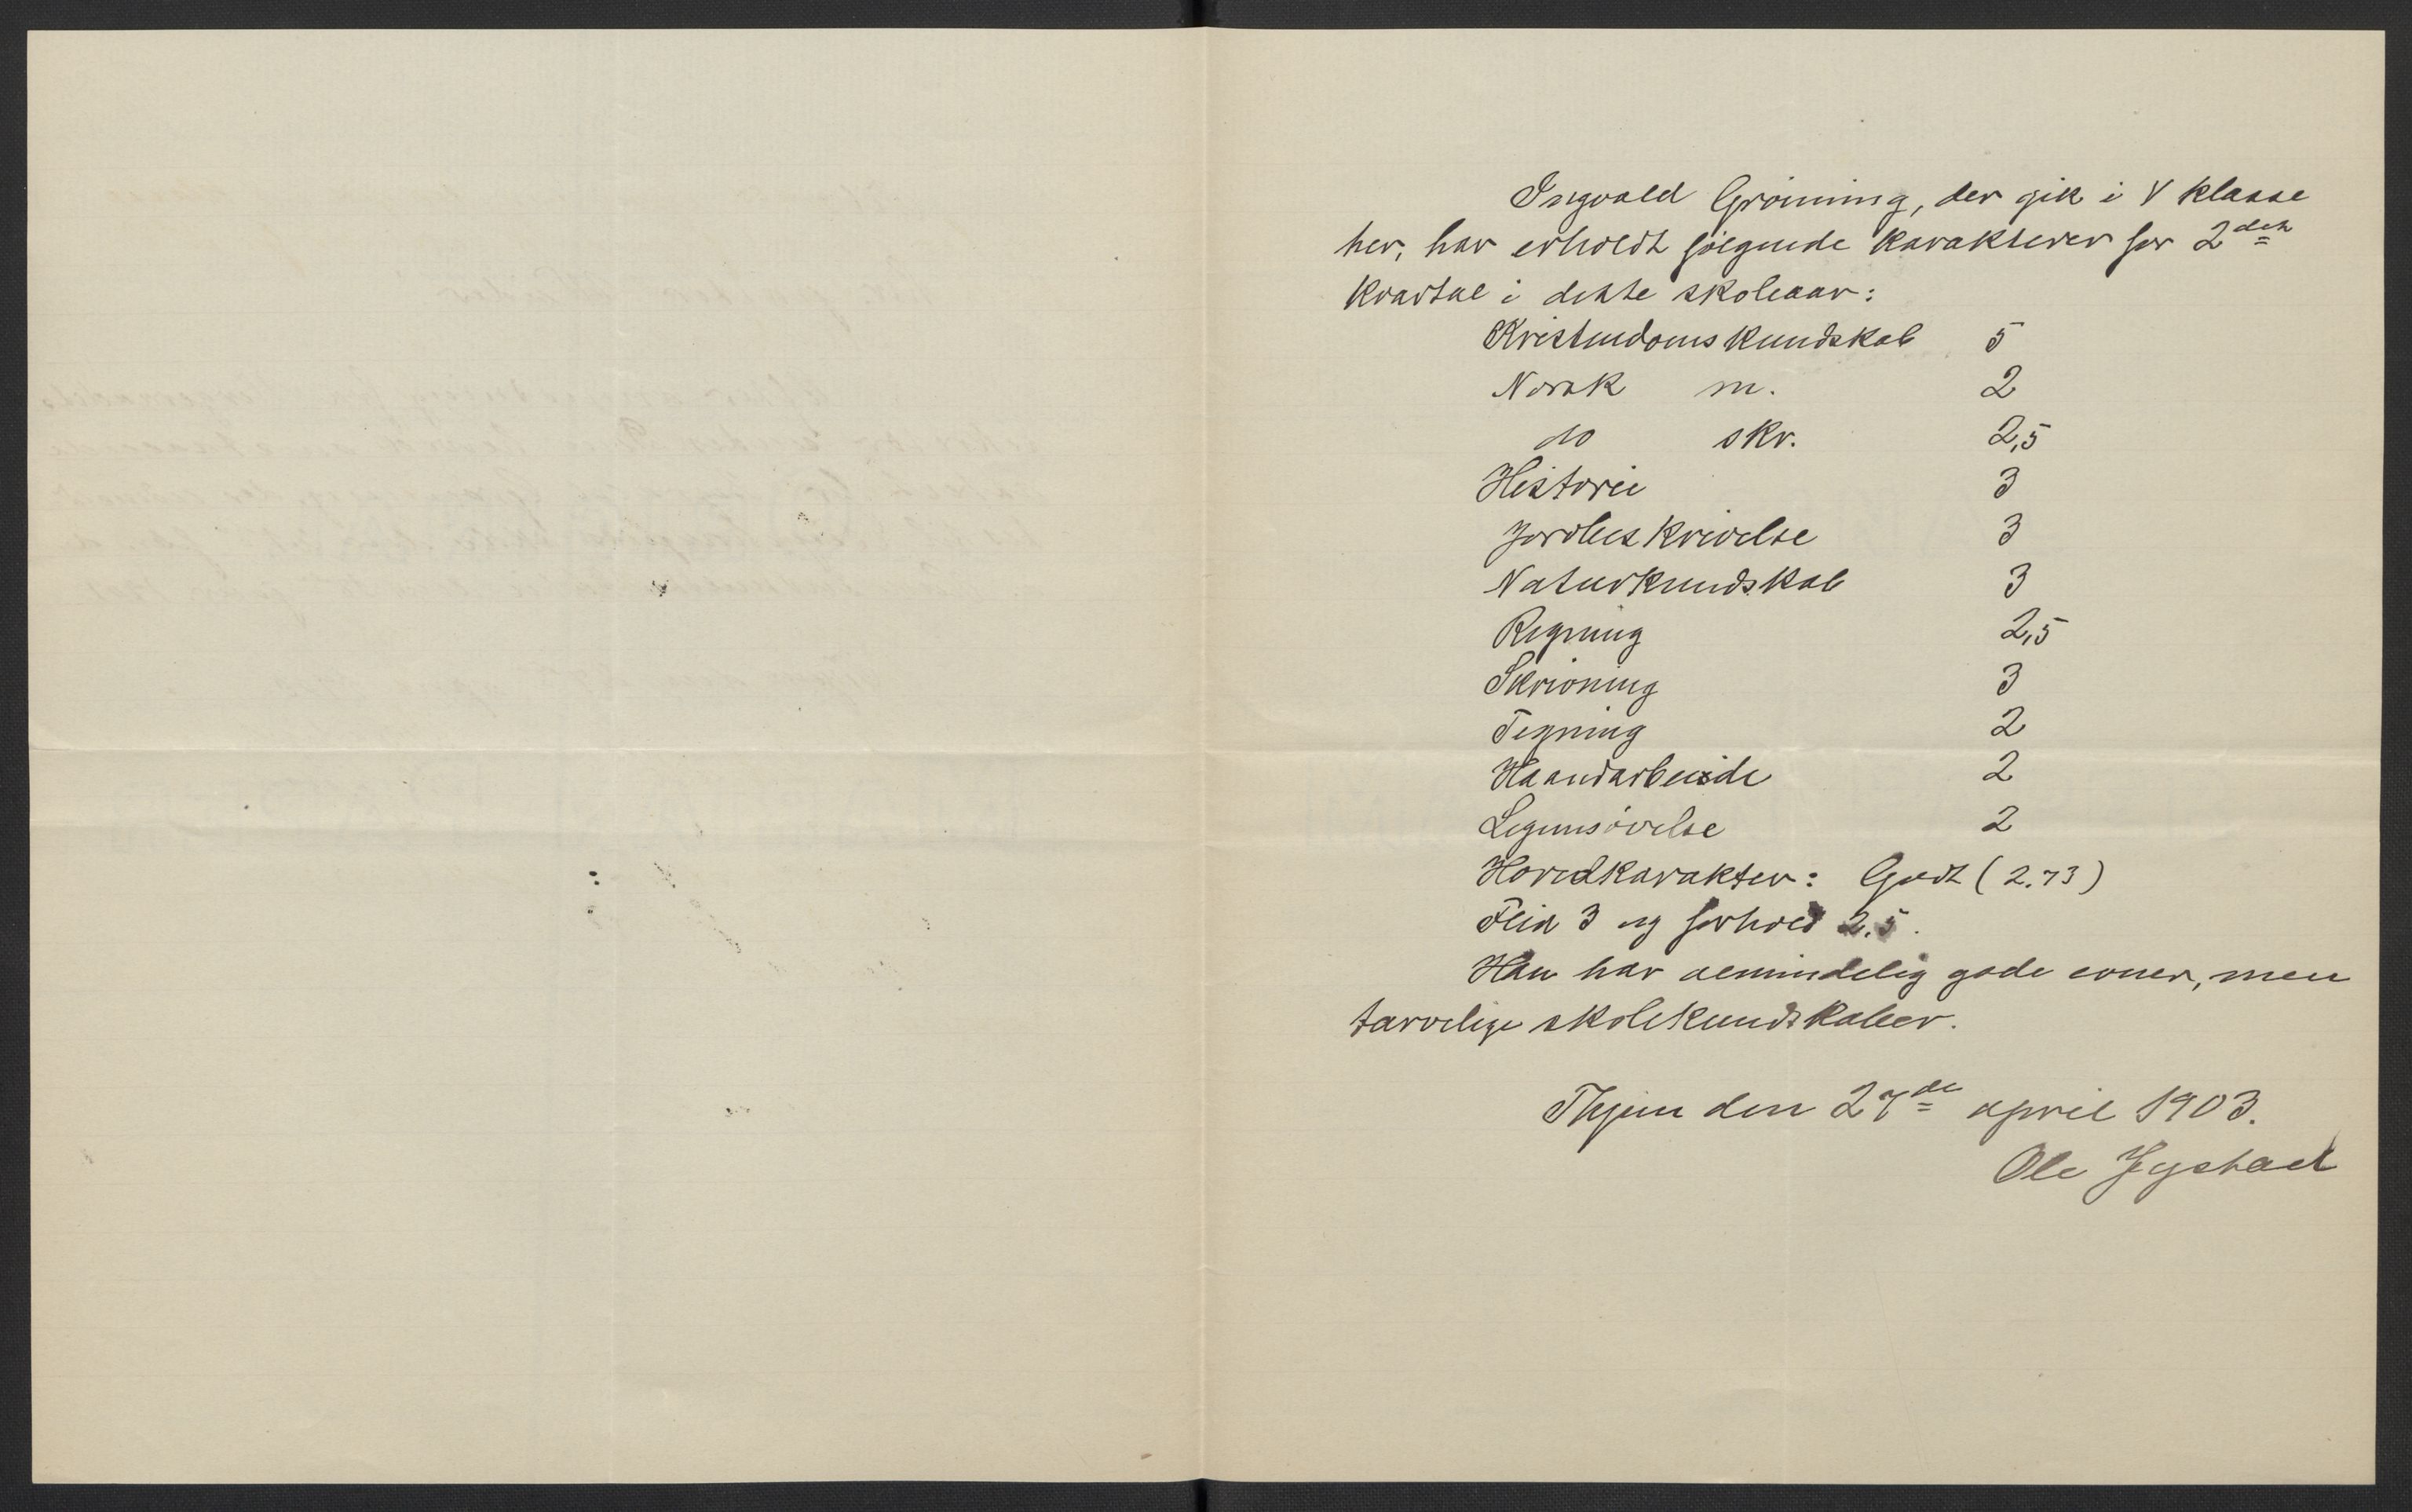 Ingvald Grønning, der gik i V klasse
her, har erholdt følgende karakterer for 2den
kvartal i dette skoleaar:
Kristendomskundskab 5
Norsk m. 2
do skr. 2,5
Historie 3
Jordbeskrivelse 3
Naturkundskab 3
Regning 2,5
Skrivning 3
Tegning 2
Haandarbeide 2
Legemsøvelse 2
Hovedkarakter: Godt (2.73)
Flid 3 og forhold 2.5.
Han har almindelig gode evner, men
tarvelige skolekundskaber.
Thjem den 27de april 1903.
Ole Jystad